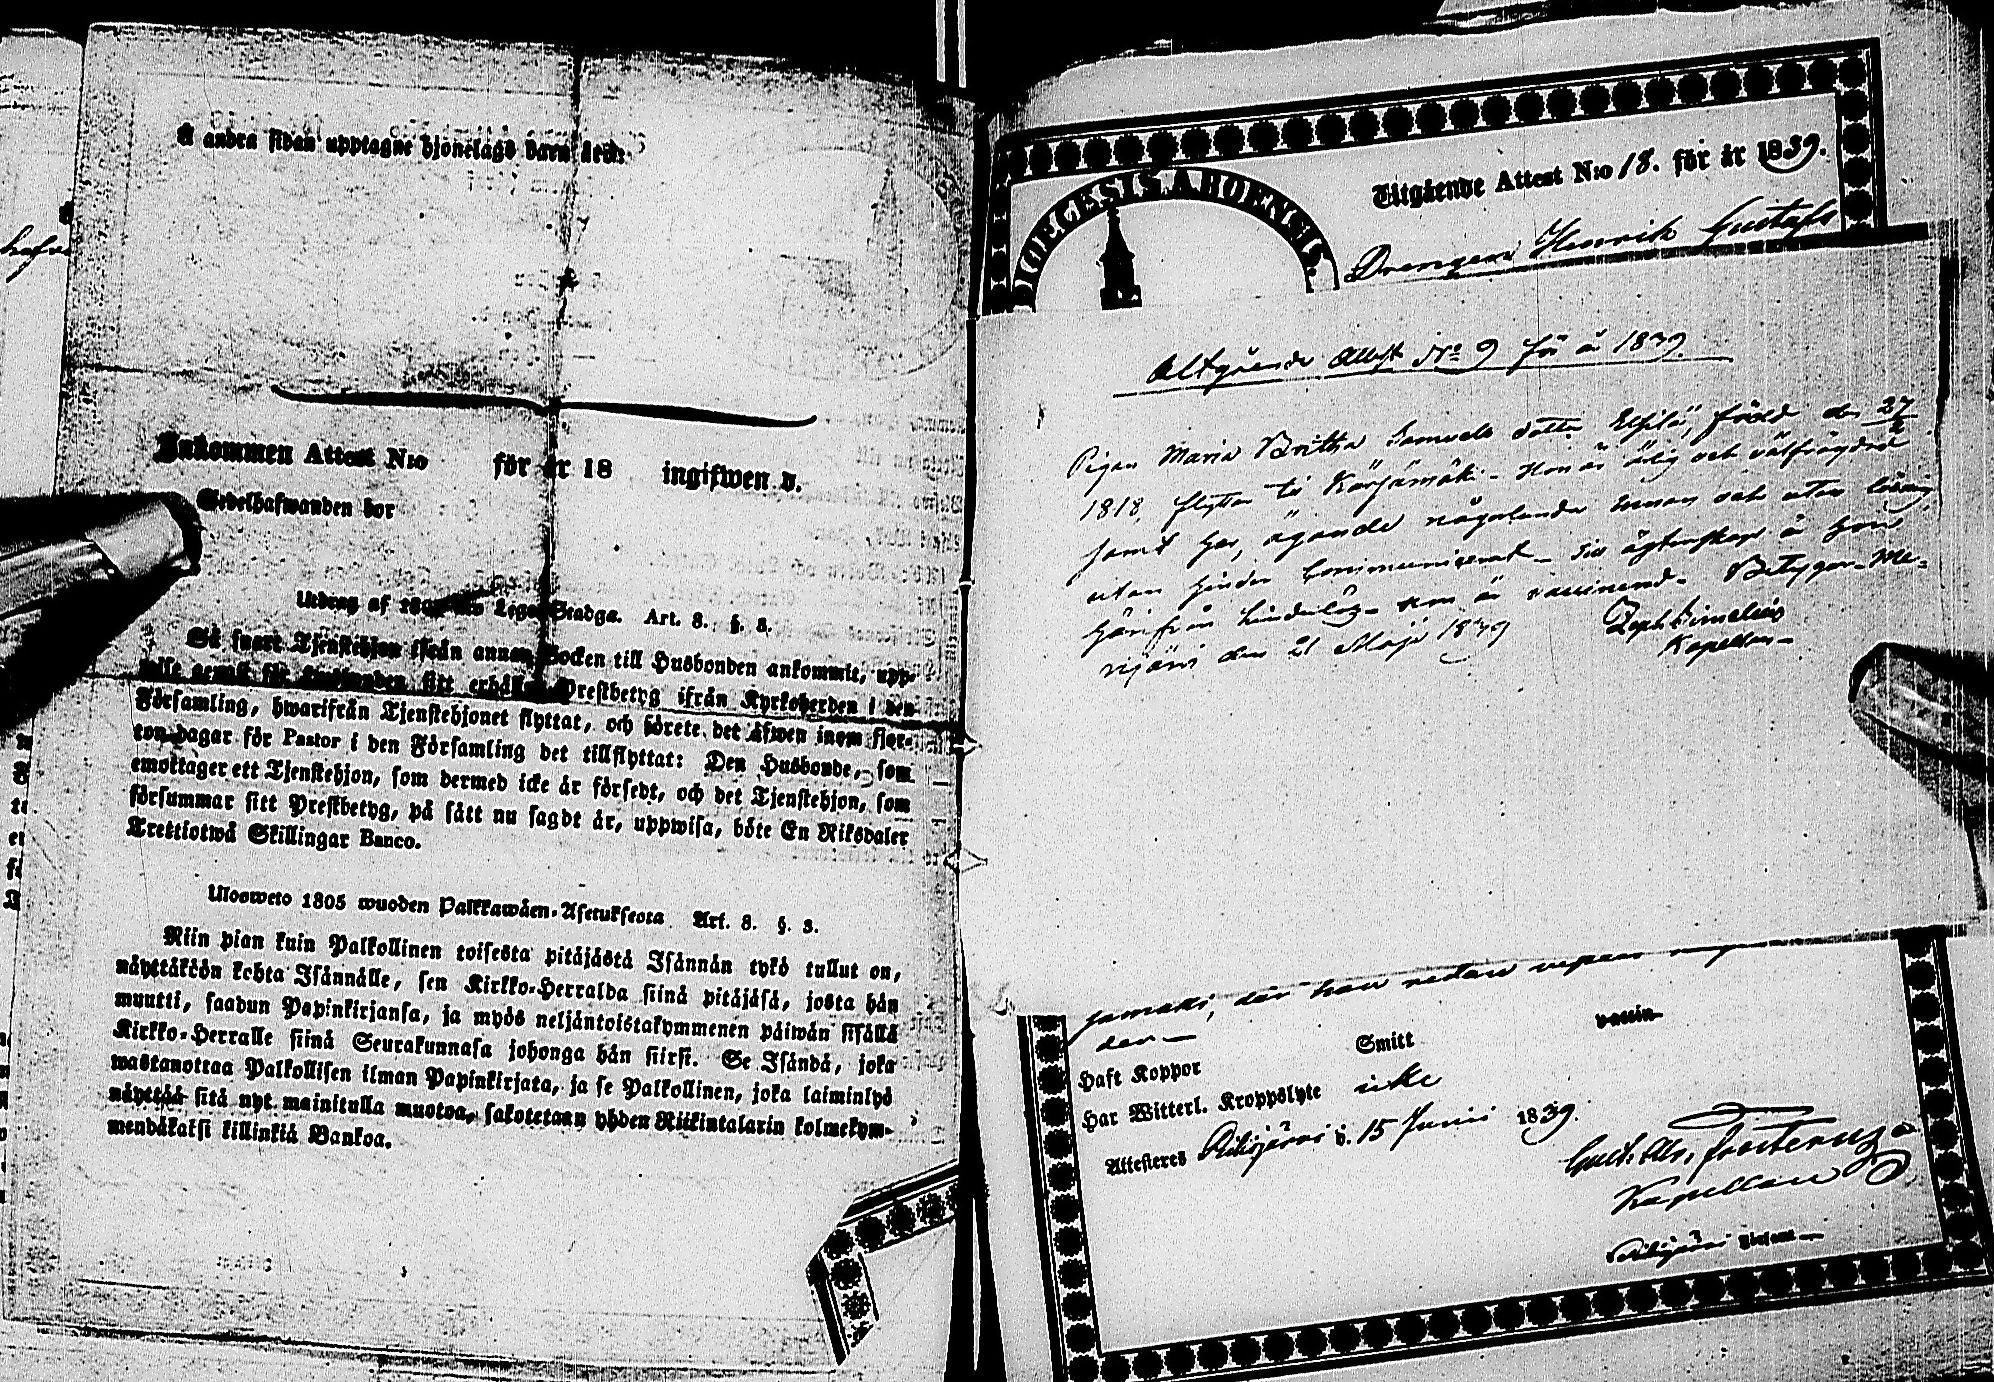 å andra sidan upptagne hjonelags barn äro:
Inkommen Attest N:o för år 18 ingifwen d.
Sedelhafwanden bor
Utdrag af 1805 Lego-Stadga. Art. 8. §. 3.
Så snart Tjenstehjon ifrån annan Socken till Husbonden ankommit, upp-
för sitt erhållne Prestbetyg ifrån Kyrkoherden i den
Församling, hwarifrån Tjenstehjonet flyttat, och hörete det äfwen inom fjor-
ton dagar för Pastor i den Församling det tillflyttat: Den Husbonde, som
emottager ett Tjenstehjon, som dermed icke är försedt, och det Tjenstehjon, som
försummar sitt Prestbetyg, på sätt nu sagdt är, uppwisa, böte En Riksdaler
Trettiotwå Skillingar Banco.
Ulosweto 1805 wuoden Palkkawäen-Asetuksesta Art. 8. §. 3.
Niin pian kuin Palkollinen toisesta pitäjästä Isännän tykö tullut on,
näyttäköön kohta Isännälle, sen Kirkko-Herralda siinä pitäjäsä, josta hän
muutti, saadun Papinkirjansa, ja myös neljäntoistakymmenen päiwän sisällä
Kirkko-Herralle siinä Seurakunnasa johonga hän siirsi. Se Isändä, joka
wastanottaa Palkollisen ilman Papinkirjata, ja se Palkollinen, joka laiminlyö
näyttää sitä nyt mainitulla muotoa, sakotetaan yhden Riikintalarin kolmekym-
mendäkaksi killinkiä Bankoa.
DIOECESIS ABOENSIS.
Utgående Attest N:o 18. för år 1839.
Drengen Henrik Gustafs
Utgående Attest N:o 9 för år 1839.
Pigan Maria Britha Samuels dotter född den 27
1818, flyttar til Karjamäki - Hon är ärlig och välfrägdad
samt har, ägande någorlunda innan och utan läsning
utan hinder Communicerat - Till ägtenskap är hon
härifrån hinderlös - Hon är vaccinerad - Betygar Me-
rijärvi den 21 Maji 1839
Kapellan -
jamäki, der han nedan
der -
Haft Koppor Smitt vaccin
Har Witterl. Kroppslyte icke
Attesteres d. 15 Junii 1839.
Kapellan